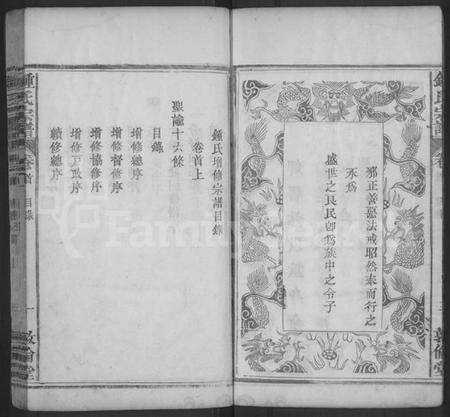 邪正善惡法戒昭然奉而行之
不爲
盛世之良民卽爲族中之令子
鍾氏增修宗譜目錄
卷首上
聖諭十六條
目錄
增修總序
增修督序
增修協修序
增修戶政序
續修總序
鍾氏宗譜
卷首
目錄
一
敦倫堂
FamilySearch